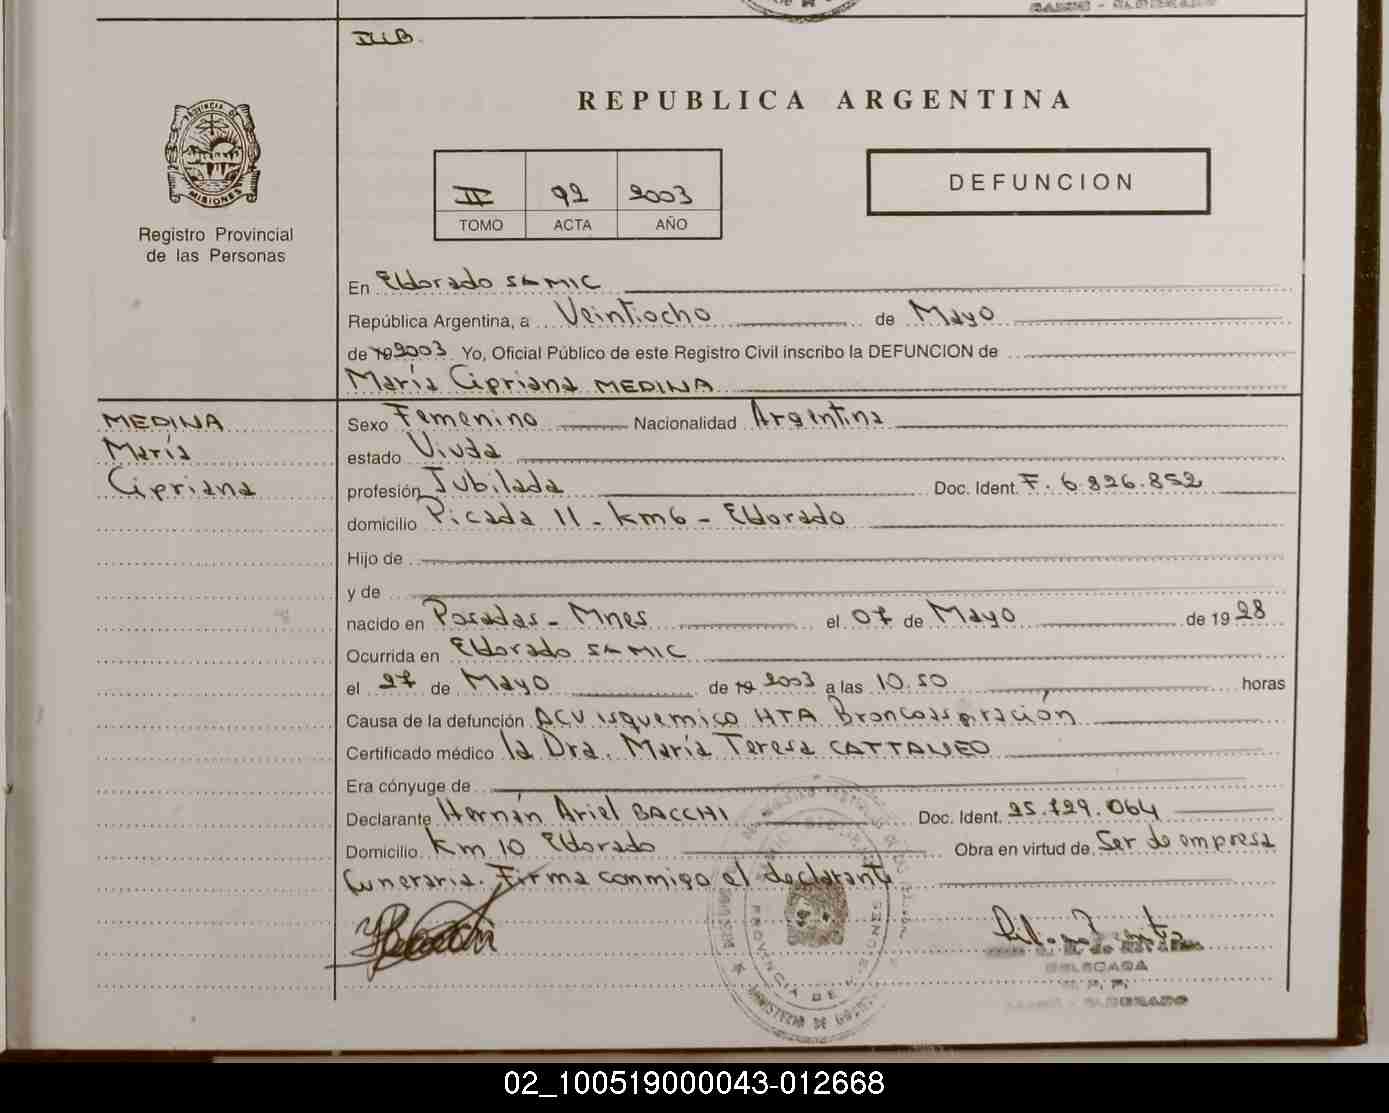 REPUBLICA ARGENTINA
PROVINCIA DE
MISIONES
Registro Provincial
de las Personas
II 92 2003
TOMO ACTA AÑO
DEFUNCION
En Eldorado SAMIC
República Argentina, a Veintiocho de Mayo
de 19 2003 Yo, Oficial Público de este Registro Civil inscribo la DEFUNCION de
María Cipriana MEDINA
MEDINA
María
Cipriana
Sexo Femenino Nacionalidad Argentina
estado Viuda
profesión Jubilada Doc. Ident. F. 6.826.852
domicilio Picada 11 - km 6 - Eldorado
Hijo de
y de
nacido en Posadas - Mnes el 07 de Mayo de 1928
Ocurrida en Eldorado SAMIC
el 27 de Mayo de 19 2003 a las 10.50 horas
Causa de la defunción ACV isquemico HTA Broncoaspiración
Certificado médico la Dra. María Teresa CATTANEO
Era cónyuge de
Declarante Hernán Ariel BACCHI Doc. Ident. 25.729.064
Domicilio Km 10 Eldorado Obra en virtud de Ser de empresa
funeraria. Firma conmigo el declarante
PROVINCIA DE
DELEGADA
SAMIC - ELDORADO
02_100519000043-012668